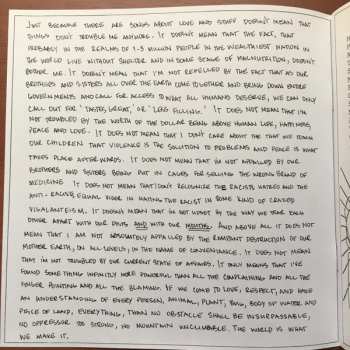 JUST BECAUSE THERE ARE SONGS ABOUT LOVE AND STUFF DOESN'T MEAN THAT
THINGS DON'T TROUBLE ME ANYMORE. IT DOESN'T MEAN THAT THE FACT, THAT
PROBABLY IN THE REALMS OF 1-3 MILLION PEOPLE IN THE WEALTHIEST NATION IN
THE WORLD LIVE WITHOUT SHELTER AND IN SOME STAGE OF MALNUTRITION, DOESN'T
BOTHER ME. IT DOESN'T MEAN THAT I'M NOT REPELLED BY THE FACT THAT AS OUR
BROTHERS AND SISTERS ALL OVER THE EARTH COME TOGETHER AND BRING DOWN ENTIRE
GOVERNMENTS, AND CALL FOR ACCESS TO WHAT ALL HUMANS DESERVE, WE CAN ONLY
CALL OUT FOR "TASTES GREAT," OR "LESS FILLING." IT DOES NOT MEAN THAT I'M
NOT TROUBLED BY THE WORTH OF THE DOLLAR BEING ABOVE HUMAN LIFE, HAPPINESS,
PEACE AND LOVE. IT DOES NOT MEAN THAT I DON'T CARE ABOUT THE THAT WE TEACH
OUR CHILDREN THAT VIOLENCE IS THE SOLUTION TO PROBLEMS AND PEACE IS WHAT
TAKES PLACE AFTERWARDS. IT DOES NOT MEAN THAT I'M NOT APPALLED BY OUR
BROTHERS AND SISTERS BEING PUT IN CAGES FOR SELLING THE WRONG BRAND OF
MEDICINE. IT DOES NOT MEAN THAT I DON'T RECOGNIZE THE RACISTS HATRED AND THE
ANTI-RACISTS EQUAL FLOOR IN HATING THE RACIST IN SOME KIND OF CRAZED
VIGALANTEISM. IT DOESN'T MEAN THAT I'M NOT UPSET BY THE WAY WE TEAR EACH
OTHER APART WITH OUR DEVILS AND WITH OUR MOUTHS. AND ABOVE ALL IT DOES NOT
MEAN THAT I AM NOT ABSOLUTELY APPALLED BY THE RAMPANT DESTRUCTION OF OUR
MOTHER EARTH, ON ALL LEVELS, IN THE NAME OF CONVENIENCE. IT DOES NOT MEAN
THAT I'M NOT TROUBLED BY OUR CURRENT STATE OF AFFAIRS. IT ONLY MEANS THAT I'VE
FOUND SOMETHING INFINITLY MORE POWERFUL THAN ALL THE COMPLAINING AND ALL THE
FINGER POINTING AND ALL THE BLAMING. IF WE COME TO LOVE, RESPECT, AND HAVE
AN UNDERSTANDING OF EVERY PERSON, ANIMAL, PLANT, BUG, BODY OF WATER AND
PEICE OF LAND, EVERYTHING, THAN NO OBSTACLE SHALL BE INSURPASSABLE,
NO OPPRESSOR TO STRONG, NO MOUNTAIN UNCLIMBABLE. THE WORLD IS WHAT
WE MAKE IT.